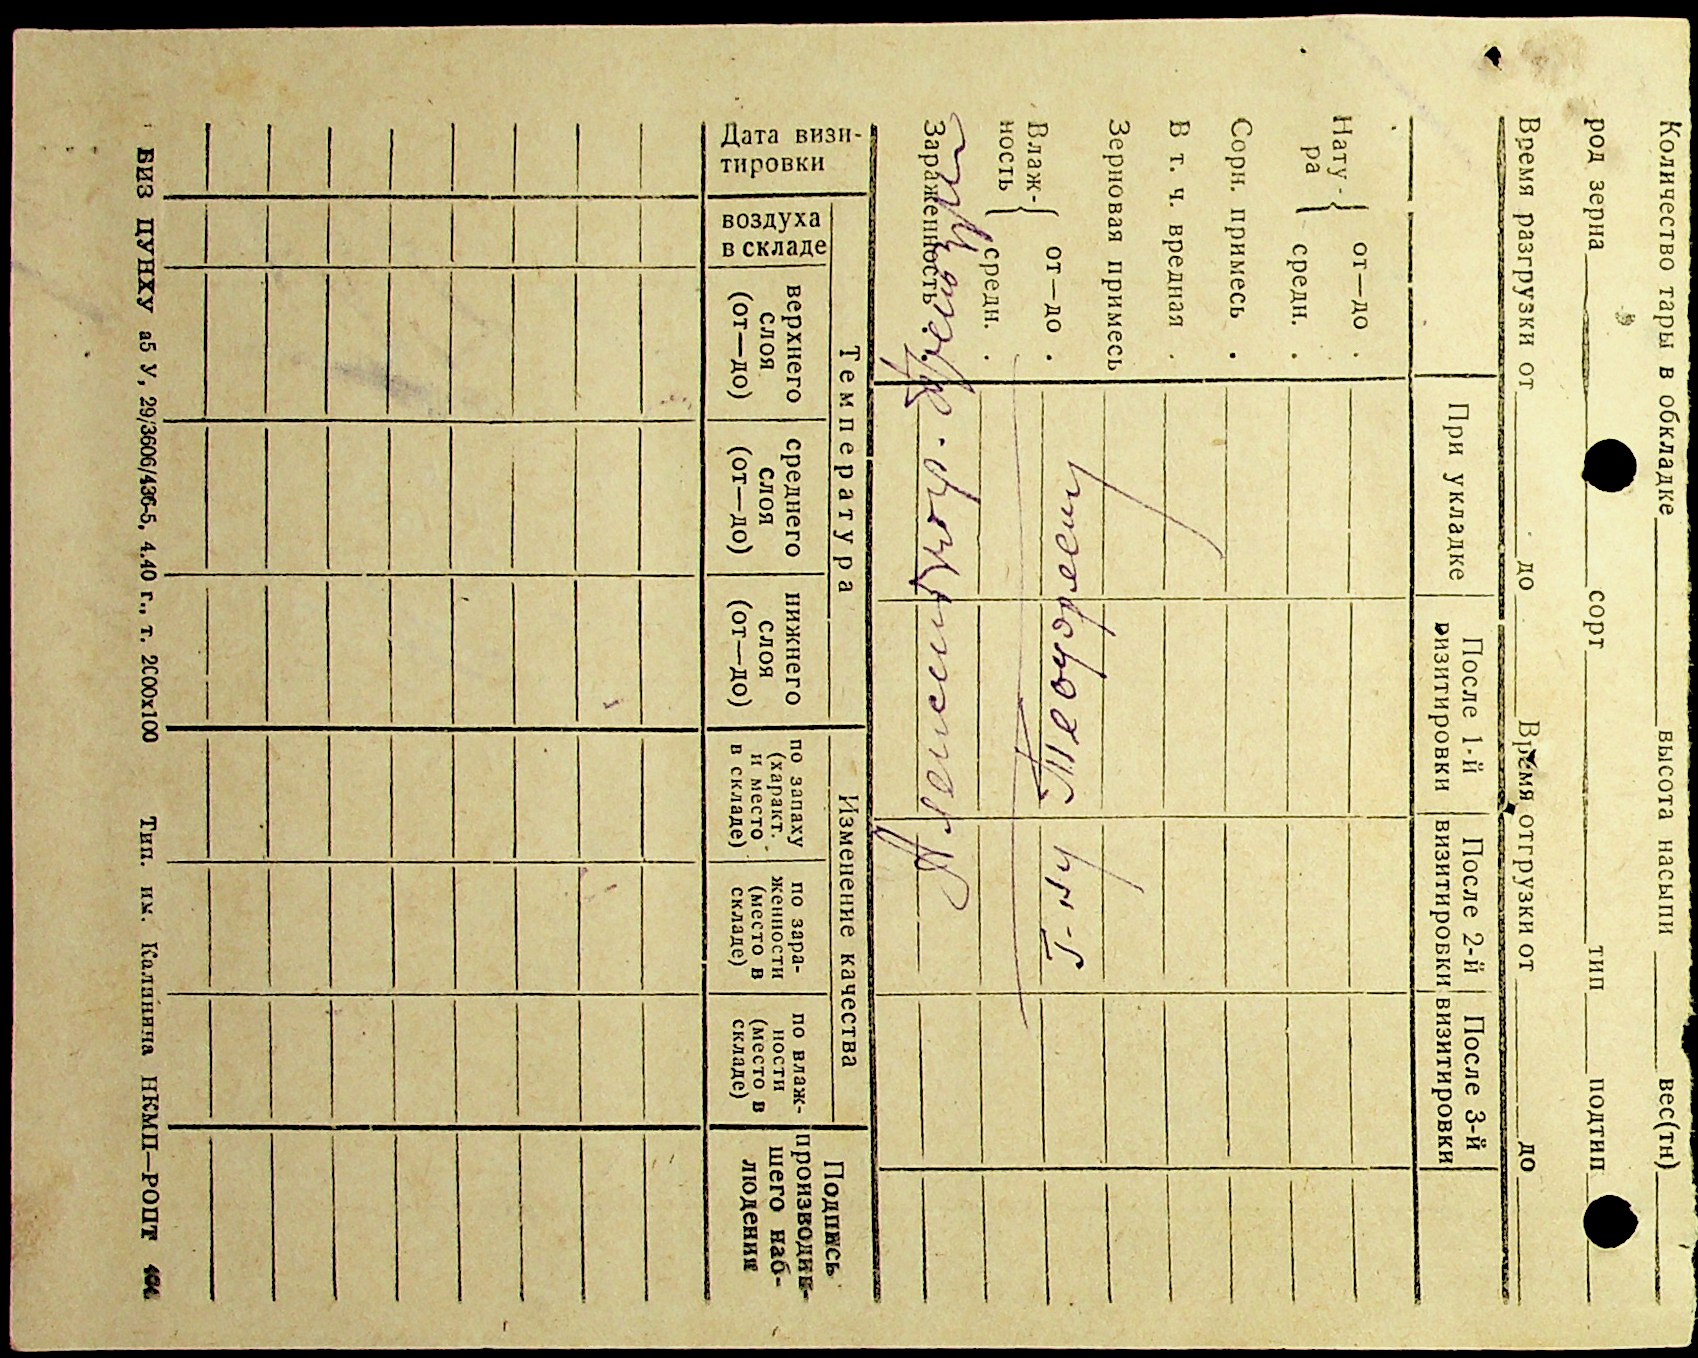 Количество тары в обкладке высота насыпи вес(тн)
род зерна сорт тип подтип
Время разгрузки от до Время отгрузки от до
При укладке
После 1-й визитировки
После 2-й визитировки
После 3-й визитировки
Нату-ра { от—до .
средн. .
Сорн. примесь .
В т. ч. вредная .
Зерновая примесь
Влаж-ность { от—до .
средн. .
Зараженность
Г-ну
Дата визи-
тировки
Температура
воздуха
в складе
верхнего
слоя
(от—до)
среднего
слоя
(от—до)
нижнего
слоя
(от—до)
Изменение качества
по запаху
(характ.
и место
в складе)
по зара-
женности
(место в
складе)
по влаж-
ности
(место в
складе)
Подпись
производив-
шего наб-
людения
БИЗ ЦУНХУ а5 У, 29/3606/436-5, 4.40 г., т. 2000х100 Тип. им. Калинина НКМП—РОПТ